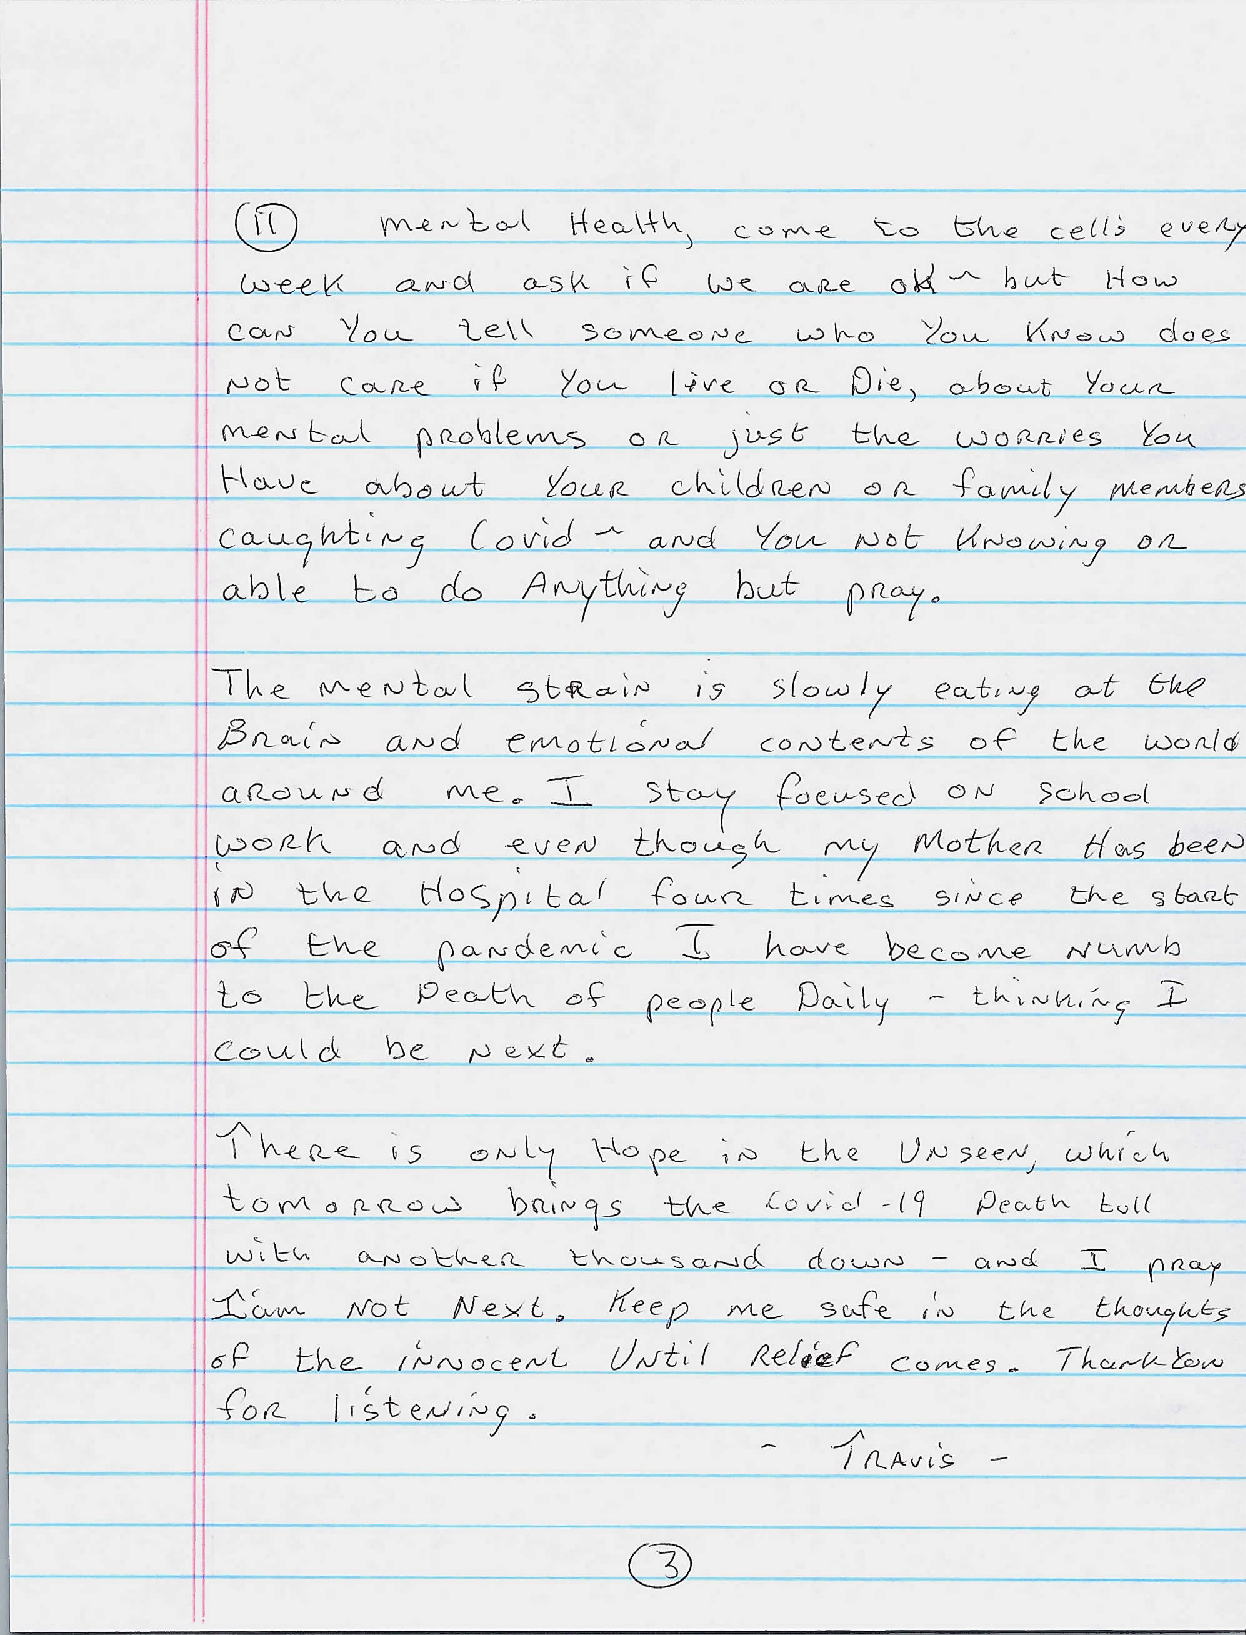 (11) Mental Health, come to the cells every
week and ask if we are ok ~ but How
can You tell someone who You Know does
Not care if You live or Die, about Your
mental problems or just the worries You
Have about Your children or family members
caughting Covid ~ and You Not Knowing or
able to do Anything but pray.
The mental strain is slowly eating at the
Brain and emotional contents of the world
around me. I stay focused on school
work and even though my Mother Has been
in the Hospital four times since the start
of the pandemic I have become Numb
to the Death of people Daily - thinking I
could be Next.
There is only Hope in the Unseen, which
tomorrow brings the Covid-19 Death toll
with another thousand down - and I pray
I'am Not Next. Keep me safe in the thoughts
of the innocent Until Relief comes. Thank You
for listening.
- Travis -
3